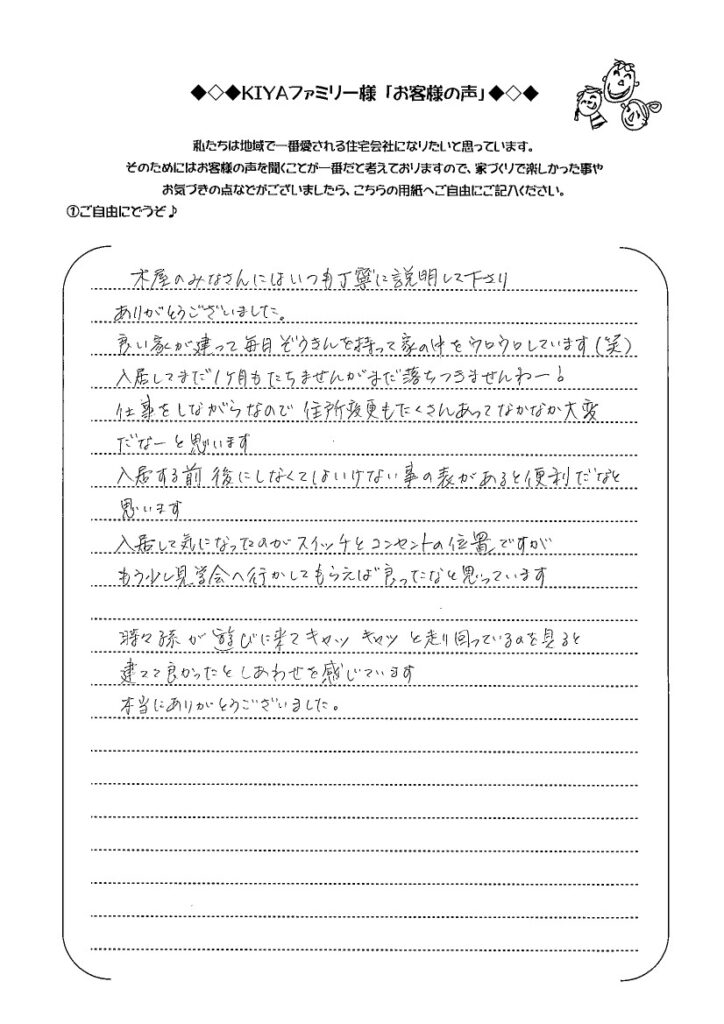 ◆◇◆KIYAファミリー様「お客様の声」◆◇◆
私たちは地域で一番愛される住宅会社になりたいと思っています。
そのためにはお客様の声を聞くことが一番だと考えておりますので、家づくりで楽しかった事や
お気づきの点などがございましたら、こちらの用紙へご自由にご記入ください。
①ご自由にどうぞ♪
木屋のみなさんにはいつも丁寧に説明して下さり
ありがとうございました。
良い家が建って毎日ぞうきんを持って家の中をウロウロしています(笑)
入居してまだ1ヶ月もたちませんがまだ落ちつきませんねー!
仕事をしながらなので住所変更もたくさんあってなかなか大変
だなーと思います
入居する前後にしなくてはいけない事の表があると便利だなと
思います
入居して気になったのがスイッチとコンセントの位置ですが
もう少し見学会へ行かしてもらえば良ったなと思っています
時々孫が遊びに来てキャッキャッと走り回っているのを見ると
建てて良かったとしあわせを感じています
本当にありがとうございました。